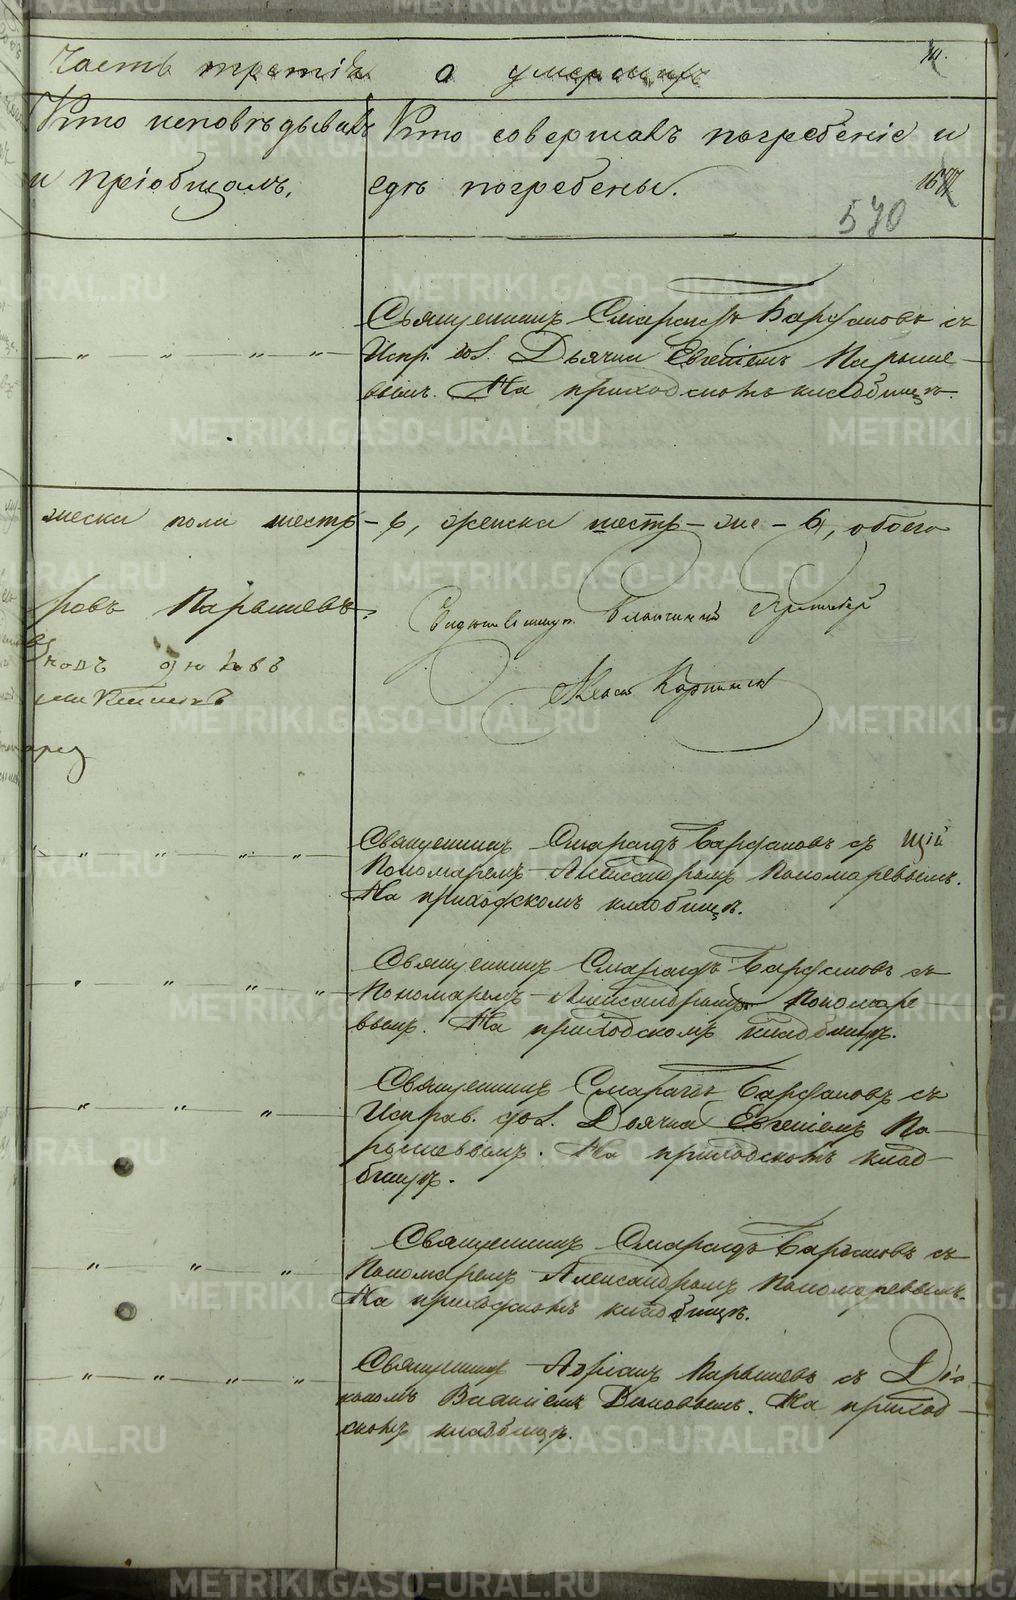 Часть третія о умершихъ
Кто исповѣдывалъ Кто совершалъ погребеніе и
и пріобщалъ. гдѣ погребены.
570
Священникъ Смарагдъ Барфановъ съ
Испр. дол. Дьячка Евгеніемъ Парыше-
вымъ. На приходскомъ кладбищѣ.
жеска пола шестр-6, женска шестр-же-6, обоего
ровъ Парышевъ
Дюковъ
Священникъ Смарагдъ Барфановъ съ
Пономаремъ Александромъ Пономаревымъ.
На приходскомъ кладбищѣ.
Священникъ Смарагдъ Барфановъ съ
Пономаремъ Александромъ Пономаре
вымъ. На приходскомъ кладбищѣ.
Священникъ Смарагдъ Барфановъ съ
Исправ. дол. Дьячка Евгеніемъ Па-
рышевымъ. На приходскомъ клад-
бищѣ.
Священникъ Смарагдъ Барфановъ съ
Пономаремъ Александромъ Пономаревымъ.
На приходскомъ кладбищѣ.
Священникъ Адріанъ Парышевъ съ Діа-
кономъ Дюковымъ. На приход-
скомъ кладбищѣ.
METRIKI.GASO-URAL.RU